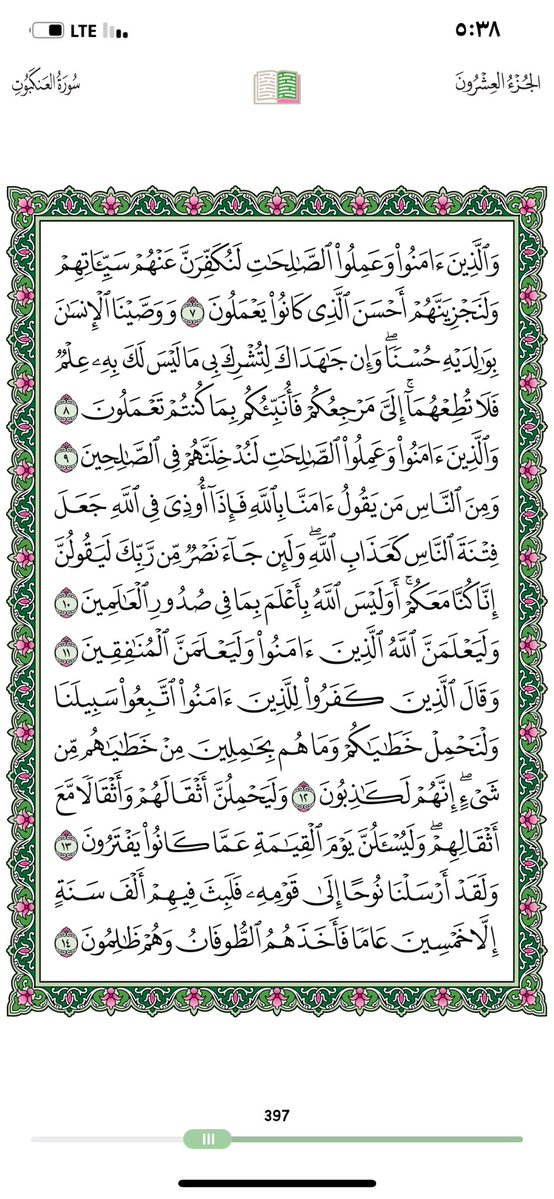 ٥:٣٨ LTE
الجُزْءُ العِشْرُونَ
سُورَةُ العَنكَبُوتِ
وَٱلَّذِينَ ءَامَنُوا۟ وَعَمِلُوا۟ ٱلصَّـٰلِحَـٰتِ لَنُكَفِّرَنَّ عَنْهُمْ سَيِّـَٔاتِهِمْ
وَلَنَجْزِيَنَّهُمْ أَحْسَنَ ٱلَّذِى كَانُوا۟ يَعْمَلُونَ ٧ وَوَصَّيْنَا ٱلْإِنسَـٰنَ
بِوَٰلِدَيْهِ حُسْنًا ۖ وَإِن جَـٰهَدَاكَ لِتُشْرِكَ بِى مَا لَيْسَ لَكَ بِهِۦ عِلْمٌ
فَلَا تُطِعْهُمَآ ۚ إِلَىَّ مَرْجِعُكُمْ فَأُنَبِّئُكُم بِمَا كُنتُمْ تَعْمَلُونَ ٨
وَٱلَّذِينَ ءَامَنُوا۟ وَعَمِلُوا۟ ٱلصَّـٰلِحَـٰتِ لَنُدْخِلَنَّهُمْ فِى ٱلصَّـٰلِحِينَ ٩
وَمِنَ ٱلنَّاسِ مَن يَقُولُ ءَامَنَّا بِٱللَّهِ فَإِذَآ أُوذِىَ فِى ٱللَّهِ جَعَلَ
فِتْنَةَ ٱلنَّاسِ كَعَذَابِ ٱللَّهِ ۖ وَلَئِن جَآءَ نَصْرٌ مِّن رَّبِّكَ لَيَقُولُنَّ
إِنَّا كُنَّا مَعَكُمْ ۚ أَوَلَيْسَ ٱللَّهُ بِأَعْلَمَ بِمَا فِى صُدُورِ ٱلْعَـٰلَمِينَ ١٠
وَلَيَعْلَمَنَّ ٱللَّهُ ٱلَّذِينَ ءَامَنُوا۟ وَلَيَعْلَمَنَّ ٱلْمُنَـٰفِقِينَ ١١
وَقَالَ ٱلَّذِينَ كَفَرُوا۟ لِلَّذِينَ ءَامَنُوا۟ ٱتَّبِعُوا۟ سَبِيلَنَا
وَلْنَحْمِلْ خَطَـٰيَـٰكُمْ وَمَا هُم بِحَـٰمِلِينَ مِنْ خَطَـٰيَـٰهُم مِّن
شَىْءٍ ۖ إِنَّهُمْ لَكَـٰذِبُونَ ١٢ وَلَيَحْمِلُنَّ أَثْقَالَهُمْ وَأَثْقَالًا مَّعَ
أَثْقَالِهِمْ ۖ وَلَيُسْـَٔلُنَّ يَوْمَ ٱلْقِيَـٰمَةِ عَمَّا كَانُوا۟ يَفْتَرُونَ ١٣
وَلَقَدْ أَرْسَلْنَا نُوحًا إِلَىٰ قَوْمِهِۦ فَلَبِثَ فِيهِمْ أَلْفَ سَنَةٍ
إِلَّا خَمْسِينَ عَامًا فَأَخَذَهُمُ ٱلطُّوفَانُ وَهُمْ ظَـٰلِمُونَ ١٤
397